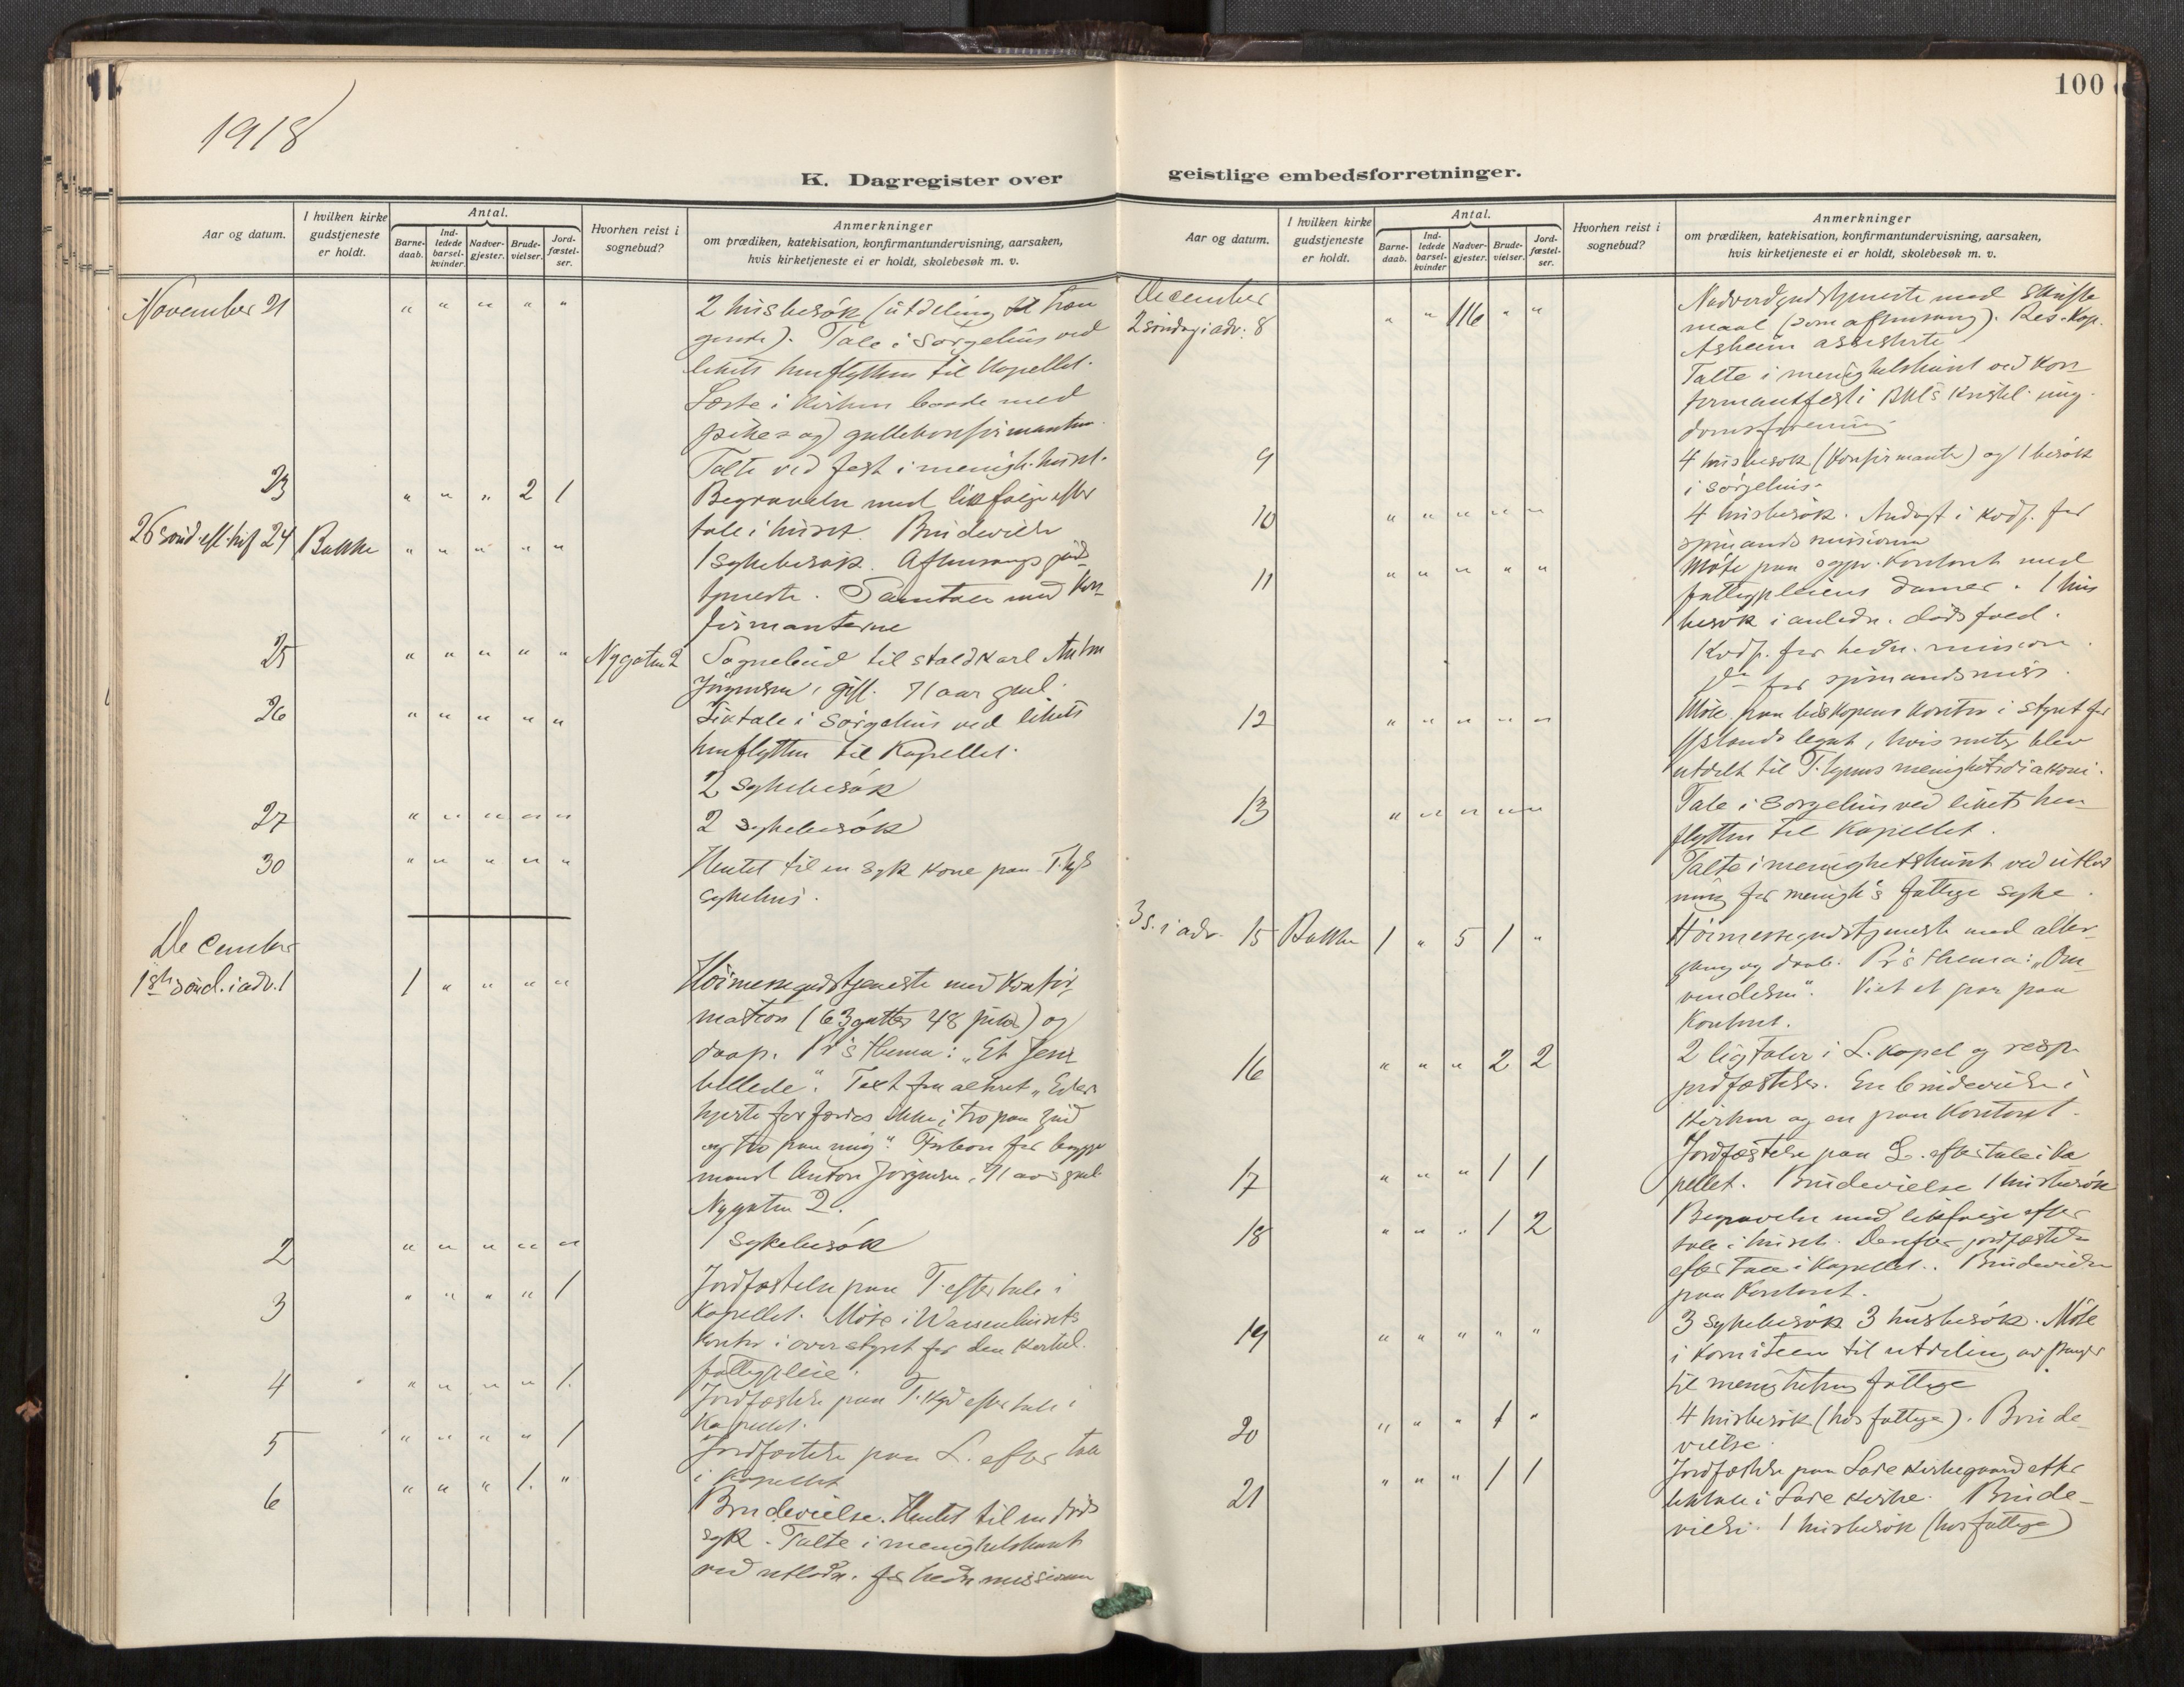 1918
100
K. Dagregister over geistlige embedsforretninger.
Aar og datum.
I hvilken kirke gudstjeneste er holdt.
Antal.
Barne-daab.
Ind-ledede barsel-kvinder.
Nadver-gjester.
Brude-vielser.
Jord-fæstel-ser.
Hvorhen reist i sognebud?
Anmerkninger
om prædiken, katekisation, konfirmantundervisning, aarsaken,
hvis kirketjeneste ei er holdt, skolebesøk m. v.
November 21 " " " " "
2 husbesök (utdeling til træn
gende). Tale i Sörgehus ved
likets henflytten til Kapellet.
Læste i kirken baade med
pike- og guttekonfirmanten
Talte ved fest i menigh. huset.
23 " " " 2 1
Begravelse med likfølge efter
tale i huset. Brudevielse
26 sönd. eft. 24 Bakke " " " " "
1 sykebesök. Aftensangsgud
tjeneste. Samtale med kon
firmanterne
25 " " " " " Nygaten 2
Sognebud til staldkarl Anton
Jörgensen, gift. 71 aar gml.
26 " " " " "
Liktale i Sörgehus ved likets
henflytten til Kapellet.
2 sykebesök
27 " " " " "
2 sykebesök
30 " " " " "
Hentet til en syk kone paa T.hjs
sykehus.
December
1ste sönd. i adv. 1 1 " " " "
Höimessegudstjeneste med Konfir
mation (63 gutter 48 piker) og
daap. Pr's thema: "Et
billede". Text fra alteret "Eders
hjerte forfærdes ikke, tro paa Gud
og tro paa mig". Forbön for
mand Anton Jörgensen, 71 aar gml.
Nygaten 2.
2 " " " " "
1 sykebesök
3 " " " " 1
Jordfæstelse paa T. efter tale i
Kapellet. Möte i Waisenhusets
kontor i overstyret for den kirkel.
fattigpleie.
4 " " " " 1.
Jordfæstelse paa T. efter tale i
Kapellet.
5 " " " " 1
Jordfæstelse paa L. efter tale
i Kapellet
6 " " " 1. "
Brudevielse. Hentet til en döds
syk. Talte i menighetshuset
ved utlodn. for hedn. missionen
Aar og datum.
I hvilken kirke gudstjeneste er holdt.
Antal.
Barne-daab.
Ind-ledede barsel-kvinder
Nadver-gjester.
Brude-vielser.
Jord-fæstel-ser.
Hvorhen reist i sognebud?
Anmerkninger
om prædiken, katekisation, konfirmantundervisning, aarsaken,
hvis kirketjeneste ei er holdt, skolebesøk m. v.
December
2 söndag i adv. 8 " " 116 " "
Nadverdgudstjeneste med Skrifte
maal (som aftensang). Res. Kap.
Asheim assisterte
Talte i menighetshuset ved kon
firmantfest i Bkl's kristel. ung-
domsforening.
9
4 husbesök (Konfirmanter) og 1 besök
i sörgehus.
10 " " " " "
4 husbesök. Andagt i kvdf. for
sjömandsmissionen
11 " " " " "
Möte paa sogpr. Kontoret med
fattigpleiens damer. 1 hus
besök i anledn. dödsfald.
Kvdf. for hedn. mission.
do for sjömandsmiss.
12 " " " " "
Möte paa biskopens kontor i styret for
legat, hvis renter blev
utdelt til T.hjems menighetsdiakoni.
13 " " " " "
Tale i sorgehus ved likets hen
flytten til Kapellet.
Talte i menighetshuset ved utlod
ning for menigh's fattige syke.
3 s. i adv. 15 Bakke 1 " 5 1 "
Höimessegudstjeneste med alter-
gang og daab. Pr's thema: "Om
vendelsen". Viet et par paa
Kontoret.
16 " " " 2 2
2 ligtaler i L. kapel og resp.
jordfæstelser. En brudevielse i
kirken og en paa Kontoret.
17 " " " 1 1
Jordfæstelse paa L. efter tale i ka
pellet. Brudevielse 1 husbesök
18 " " " 1 2
Begravelse med likfölge efter
tale i huset. Derefter jordfæstelse
efter tale i Kapellet. Brudevielse
paa Kontoret.
19 " " " " "
3 sykebesök 3 husbesök. Möte
i komiteen til utdeling av penger
til menighetens fattige
20 " " " 1 "
4 husbesök (hos fattige). Brude-
vielse.
21 " " " 1 1
Jordfæstelse paa Lade kirkegaard efter
liktale i Lade kirke. Brude-
vielse. 1 husbesök (hos fattige)